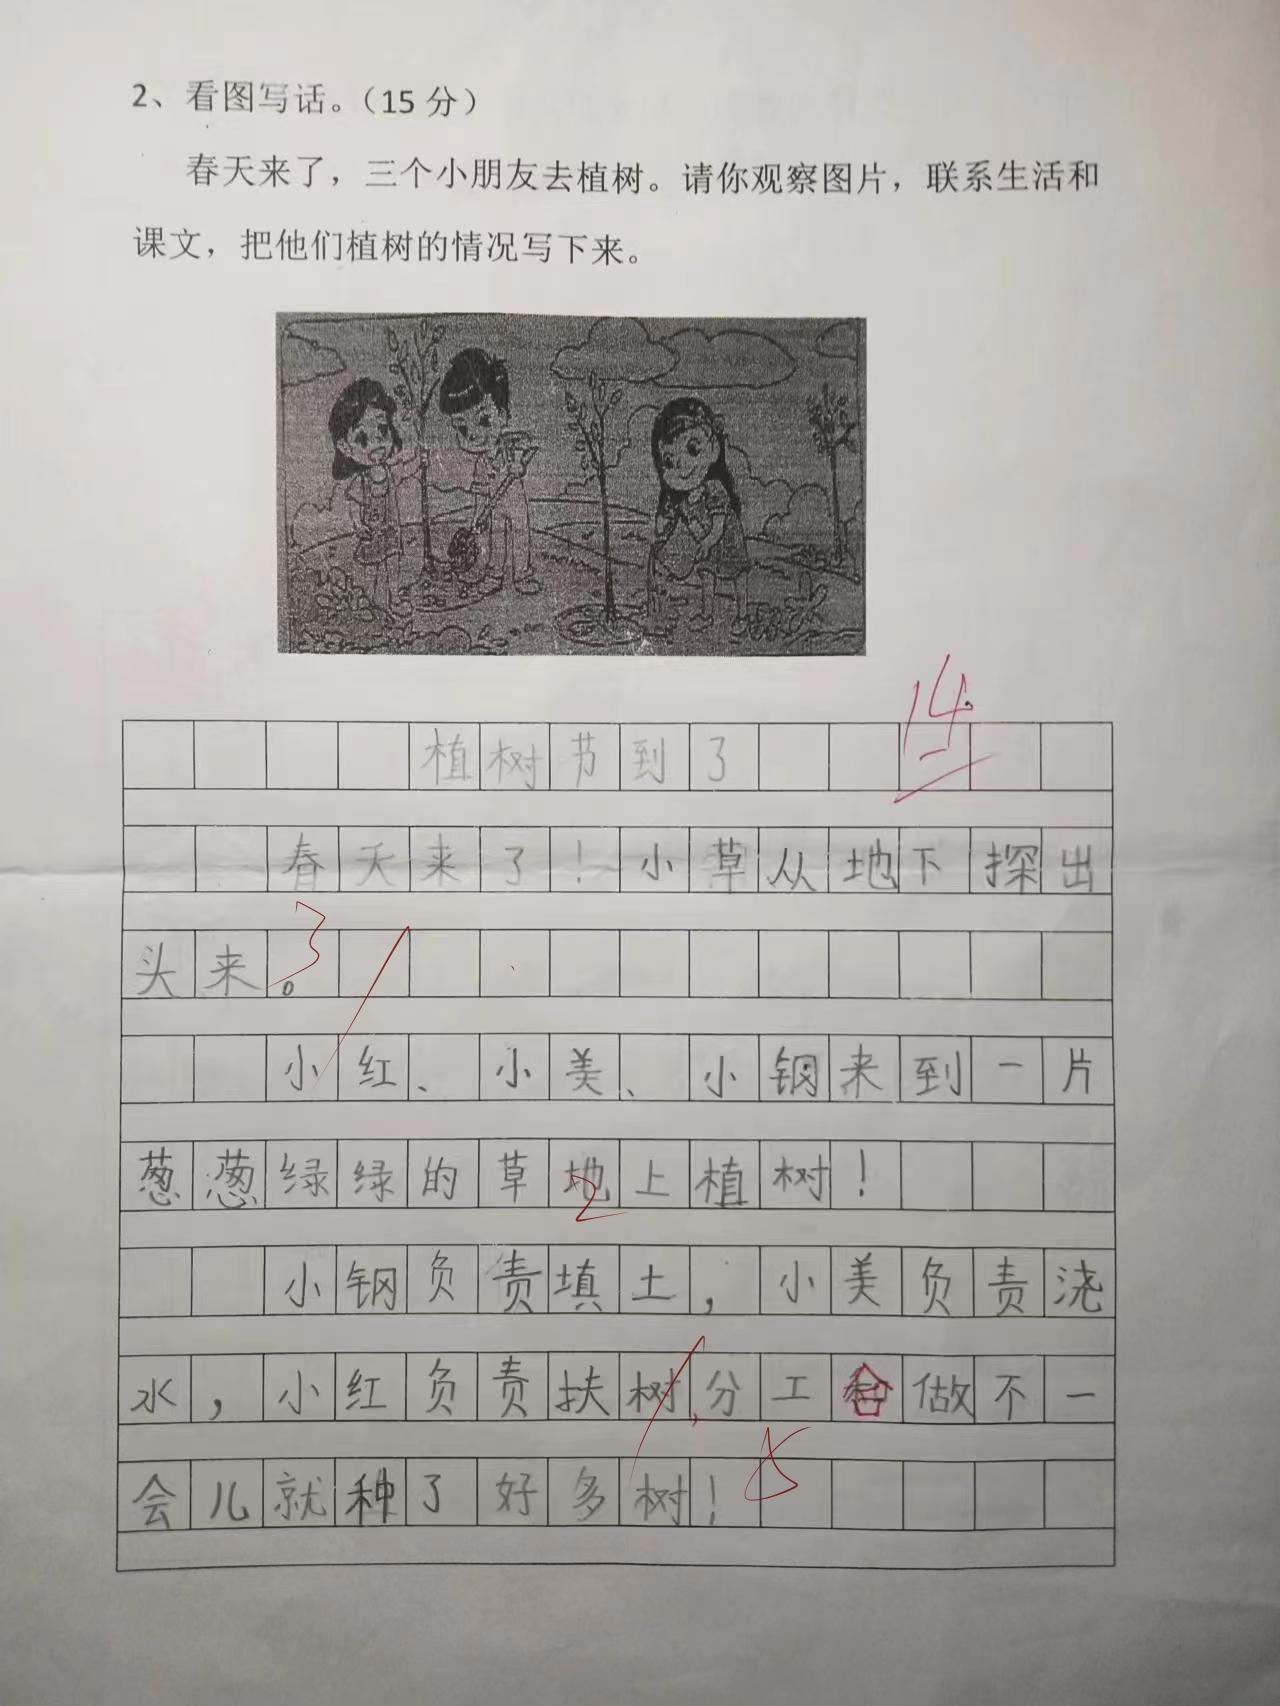 2、看图写话。（15 分）
春天来了，三个小朋友去植树。请你观察图片，联系生活和
课文，把他们植树的情况写下来。
14
植树节到了
春天来了！小草从地下探出
头来。
3
小红、小美、小钢来到一片
葱葱绿绿的草地上植树！
2
小钢负责填土，小美负责浇
水，小红负责扶树，分工合做不一
会儿就种了好多树！